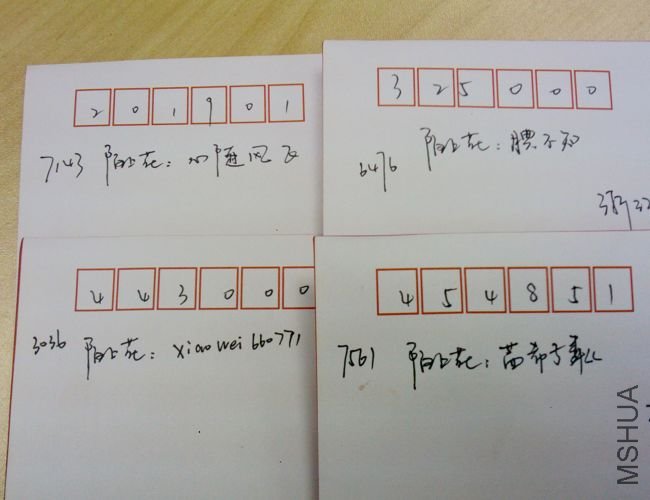 201901
7143 陌上花：心随风飞
325000
6476 陌上花：腰不知
443000
3036 陌上花：xiaowei660771
454851
7561 陌上花：
MSHUA